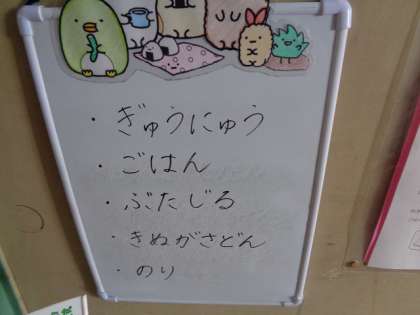 ・ぎゅうにゅう
・ごはん
・ぶたじる
・きぬがさどん
・のり